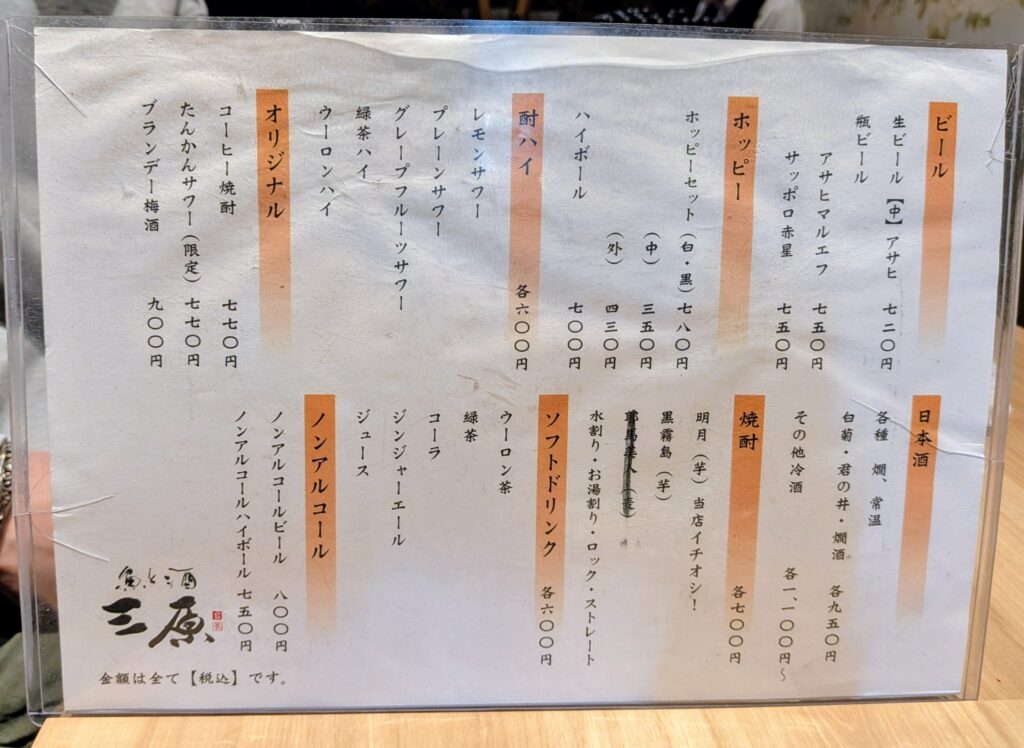 ビール
生ビール【中】アサヒ 七二〇円
瓶ビール
アサヒマルエフ 七五〇円
サッポロ赤星 七五〇円
ホッピー
ホッピーセット（白・黒）七八〇円
（中） 三五〇円
（外） 四三〇円
ハイボール 七〇〇円
酎ハイ 各六〇〇円
レモンサワー
プレーンサワー
グレープフルーツサワー
緑茶ハイ
ウーロンハイ
オリジナル
コーヒー焼酎 七七〇円
たんかんサワー（限定）七七〇円
ブランデー梅酒 九〇〇円
日本酒
各種 燗、常温
白菊・君の井・燗酒 各九五〇円
その他冷酒 各一、一〇〇円〜
焼酎 各七〇〇円
明月（芋）当店イチオシ！
黒霧島（芋）
水割り・お湯割り・ロック・ストレート
ソフトドリンク 各六〇〇円
ウーロン茶
緑茶
コーラ
ジンジャーエール
ジュース
ノンアルコール
ノンアルコールビール 八〇〇円
ノンアルコールハイボール 七五〇円
魚と酒
三原
金額は全て【税込】です。